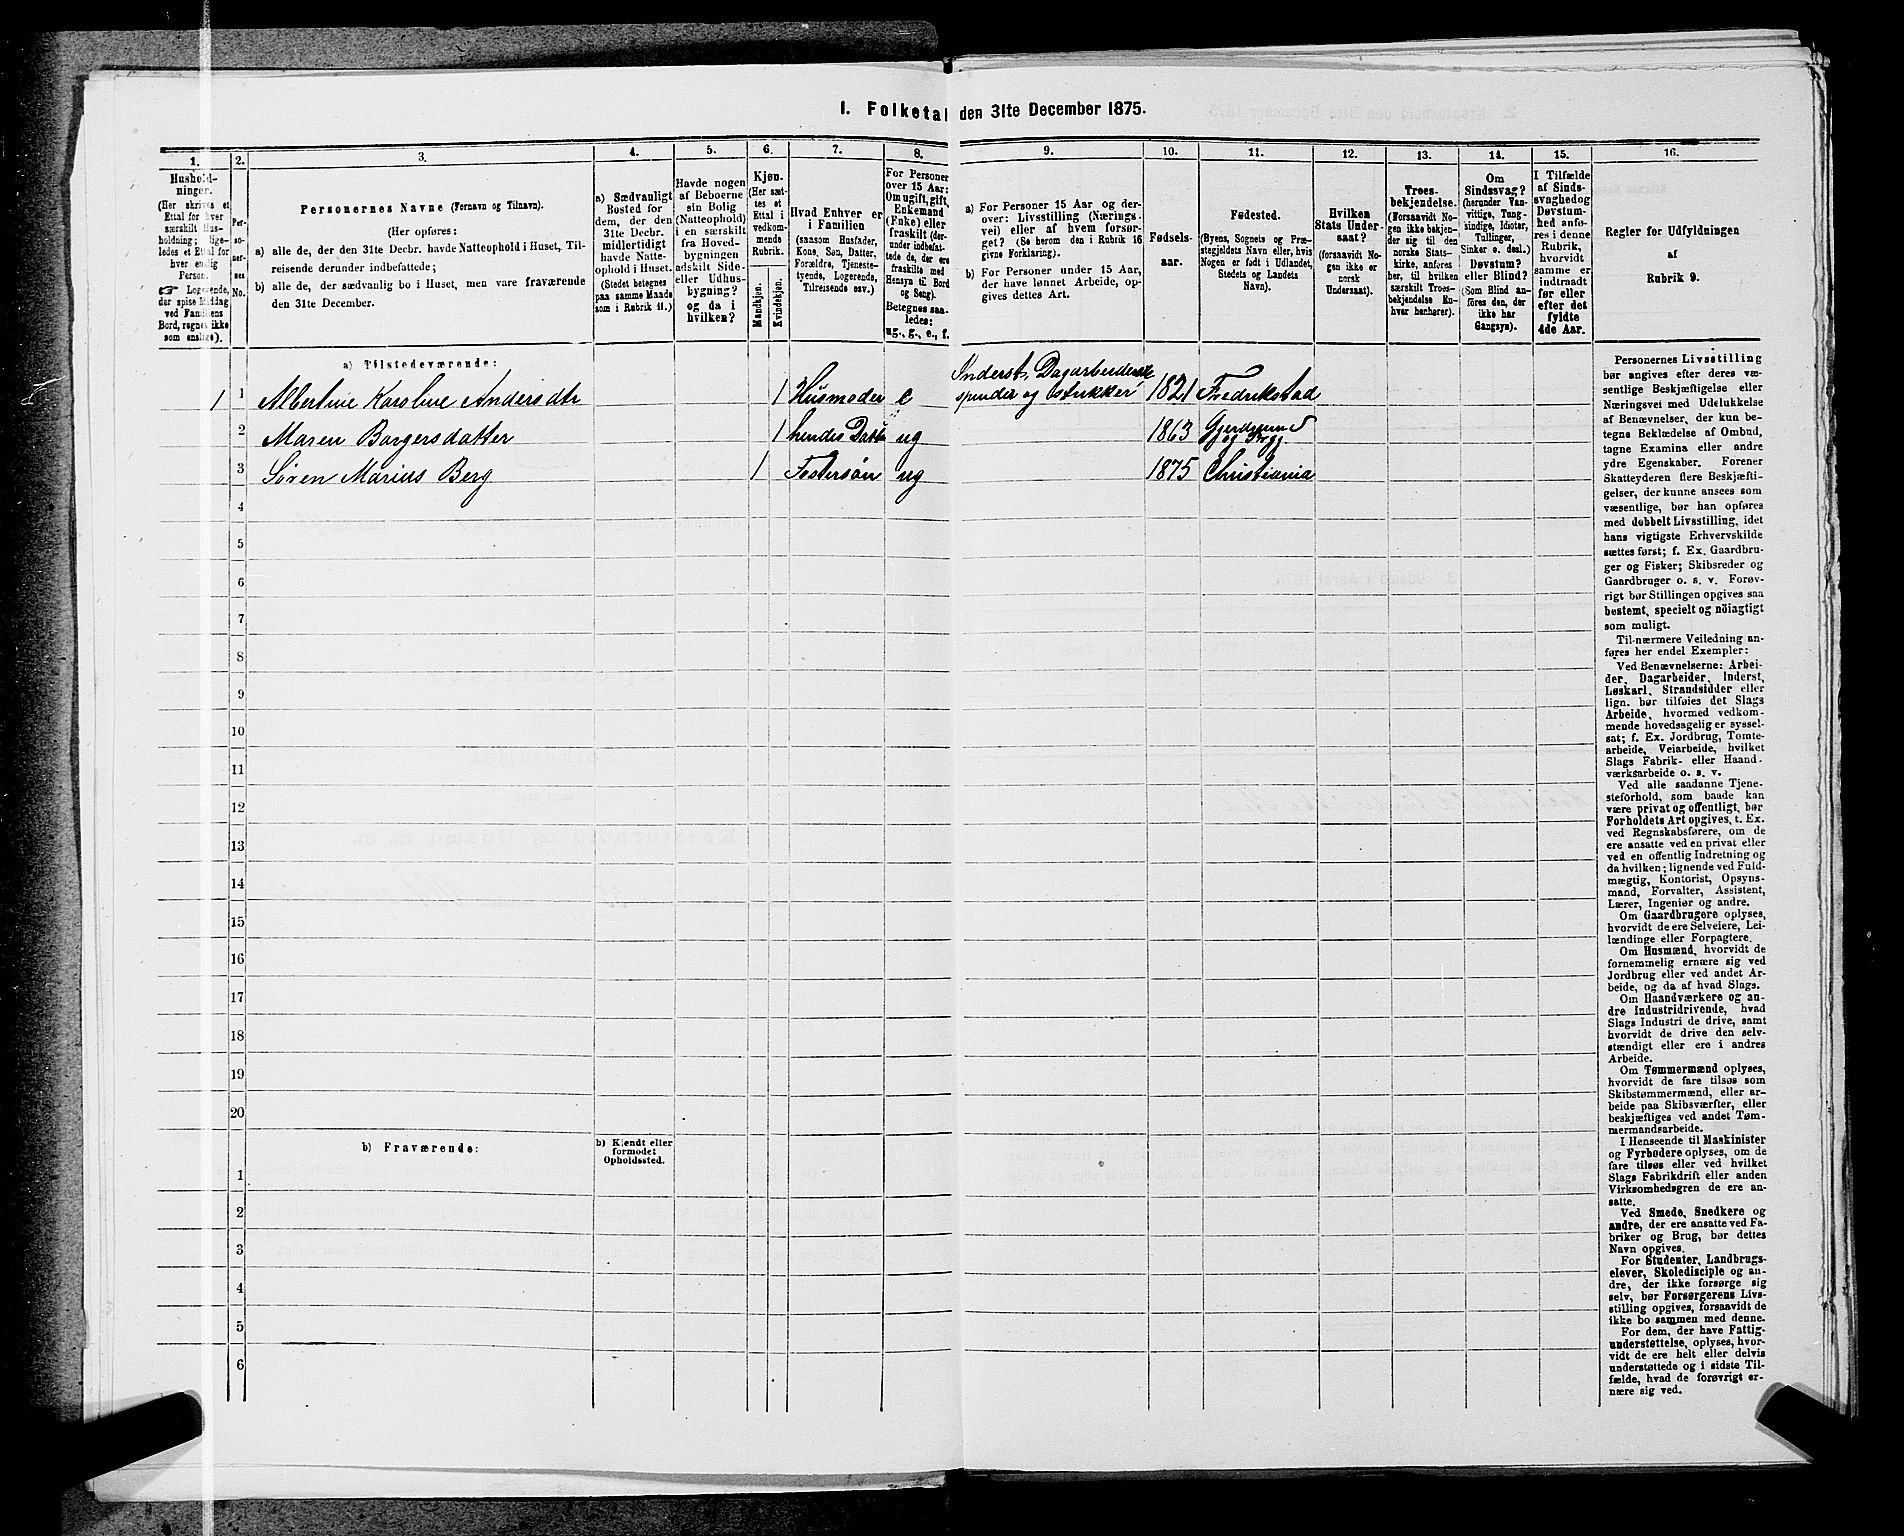 1. Folketal den 31te December 1875.
1. 2. 3. 4. 5. 6. 7. 8. 9. 10. 11. 12. 13. 14. 15. 16.
Hushold-
ninger.
(Her skrives et
Ettal for hver
særskilt Hus-
holdning; lige-
ledes et Ettal for
hver enslig
Person.
☞ Logerende,
der spise Middag
ved Familiens
Bord, regnes ikke
som enslige).
Per-
so-
ner-
nes
No.
Personernes Navne (Fornavn og Tilnavn).
(Her opføres:
a) alle de, der den 31te Decbr. havde Natteophold i Huset, Til-
reisende derunder indbefattede;
b) alle de, der sædvanlig bo i Huset, men vare fraværende
den 31te December.
a) Sædvanligt
Bosted for
dem, der den
31te Decbr.
midlertidigt
havde Natte-
ophold i Huset.
(Stedet betegnes
paa samme Maade
som i Rubrik 11.)
Havde nogen
af Beboerne
sin Bolig
(Natteophold)
i en særskilt
fra Hoved-
bygningen
adskilt Side-
eller Udhus-
bygning?
og da i
hvilken?
Kjøn.
(Her sæt-
tes et
Ettal i
vedkom-
mende
Rubrik.
Mandkjøn.
Kvindekjøn.
Hvad Enhver er
i Familien
(saasom Husfader,
Kone, Søn, Datter,
Forældre, Tjeneste-
tyende, Logerende,
Tilreisende osv.)
For Personer
over 15 Aar:
Om ugift, gift,
Enkemand
(Enke) eller
fraskilt (der-
under indbefat-
tede de, der ere
fraskilte med
Hensyn til Bord
og Seng).
Betegnes saa-
ledes:
ug., g., e., f.
a) For Personer 15 Aar og der-
over: Livsstilling (Nærings-
vei) eller af hvem forsør-
get? (Se herom den i Rubrik 16
givne Forklaring).
b) For Personer under 15 Aar,
der have lønnet Arbeide, op-
gives dettes Art.
Fødsels-
aar.
Fødested.
(Byens, Sognets og Præ-
stegjeldets Navn eller, hvis
Nogen er født i Udlandet,
Stedets og Landets
Navn).
Hvilken
Stats Under-
saat?
(forsaavidt No-
gen ikke er
norsk
Undersaat).
Troes-
bekjendelse.
(Forsaavidt No-
gen ikke bekjen-
der sig til den
norske Stats-
kirke, anføres
her, til hvilken
særskilt Troes-
bekjendelse En-
hver henhører).
Om
Sindssvag?
(herunder Van-
vittige, Tung-
sindige, Idioter,
Tullinger,
Sinker o. desl.)
Døvstum?
eller Blind?
(Som Blind an-
føres den, der
ikke har
Gangsyn).
I Tilfælde
af Sinds-
svaghed og
Døvstum-
hed anfø-
res i denne
Rubrik,
hvorvidt
samme er
indtraadt
før eller
efter det
fyldte
4de Aar.
Regler for Udfyldningen
af
Rubrik 9.
a) Tilstedeværende:
1 1 Albertine Karoline Andersdtr 1 Husmoder e Inderst, Dagarbeiderske 1821 Fredrikstad
spinder og strikker
2 Maren Borgersdatter 1 hendes Datter ug 1863 Gjerdrum
3 Søren Marius Berg 1 Fostersøn ug 1875 Christiania
4
5
6
7
8
9
10
11
12
13
14
15
16
17
18
19
20
b) Fraværende:
b) Kjendt eller
formodet
Opholdssted.
1
2
3
4
5
6
Personernes Livsstilling
bør angives efter deres væ-
sentlige Beskjæftigelse eller
Næringsvei med Udelukkelse
af Benævnelser, der kun be-
tegne Beklædelse af Ombud,
tagne Examina eller andre
ydre Egenskaber. Forener
Skatteyderen flere Beskjæfti-
gelser, der kunne ansees som
væsentlige, bør han opføres
med dobbelt Livsstilling, idet
hans vigtigste Erhvervskilde
sættes først; f. Ex. Gaardbru-
ger og Fisker; Skibsreder og
Gaardbruger o. s. v. Forøv-
rigt bør Stillingen opgives saa
bestemt, specielt og nøiagtigt
som muligt.
Til nærmere Veiledning an-
føres her endel Exempler:
Ved Benævnelserne: Arbei-
der, Dagarbeider, Inderst,
Løskarl, Strandsidder eller
lign. bør tilføies det Slags
Arbeide, hvormed vedkom-
mende hovedsagelig er syssel-
sat; f. Ex. Jordbrug, Tomte-
arbeide, Veiarbeide, hvilket
Slags Fabrik- eller Haand-
værksarbeide o. s. v.
Ved alle saadanne Tjene-
steforhold, som baade kan
være privat og offentligt, bør
Forholdets Art opgives, t. Ex.
ved Regnskabsførere, om de
ere ansatte ved en privat eller
ved en offentlig Indretning og
da hvilken; lignende ved Fuld-
mægtig, Kontorist, Opsyns-
mand, Forvalter, Assistent,
Lærer, Ingeniør og andre.
Om Gaardbrugere oplyses,
hvorvidt de ere Selveiere, Lei-
lændinge eller Forpagtere.
Om Husmænd, hvorvidt de
fornemmelig ernære sig ved
Jordbrug eller ved andet Ar-
beide, og da af hvad Slags.
Om Haandværkere og an-
dre Industridrivende, hvad
Slags Industri de drive, samt
hvorvidt de drive den selv-
stændigt eller ere i andres
Arbeide.
Om Tømmermænd oplyses,
hvorvidt de fare tilsøs som
Skibstømmermænd, eller ar-
beide paa Skibsværfter, eller
beskjæftiges ved andet Tøm-
mermandsarbeide.
I Henseende til Maskinister
og Fyrbødere oplyses, om de
fare tilsøs eller ved hvilket
Slags Fabrikdrift eller anden
Virksomhedsgren de ere an-
satte.
Ved Smede, Snedkere og
andre, der ere ansatte ved Fa-
briker og Brug, bør dettes
Navn opgives.
For Studenter, Landbrugs-
elever, Skoledisciple og an-
dre, der ikke forsørge sig
selv, bør Forsørgerens Livs-
stilling opgives, forsaavidt de
ikke bo sammen med denne.
For dem, der have Fattig-
understøttelse, oplyses, hvor-
vidt de ere helt eller delvis
understøttede og i sidste Til-
fælde, hvad de forøvrigt er-
nære sig ved.